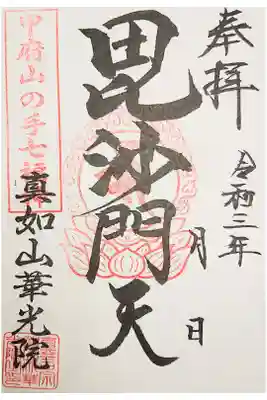 奉拝
令和三年
月
日
毘沙門天
甲府山の手七福神
真如山華光院